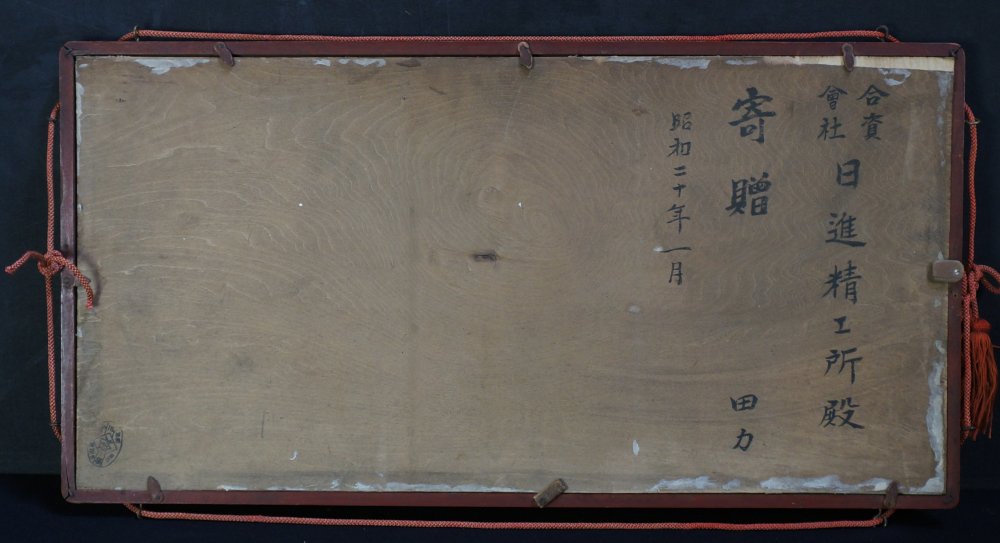 合資
會社
日進精工所殿
寄贈 田力
昭和二十年一月